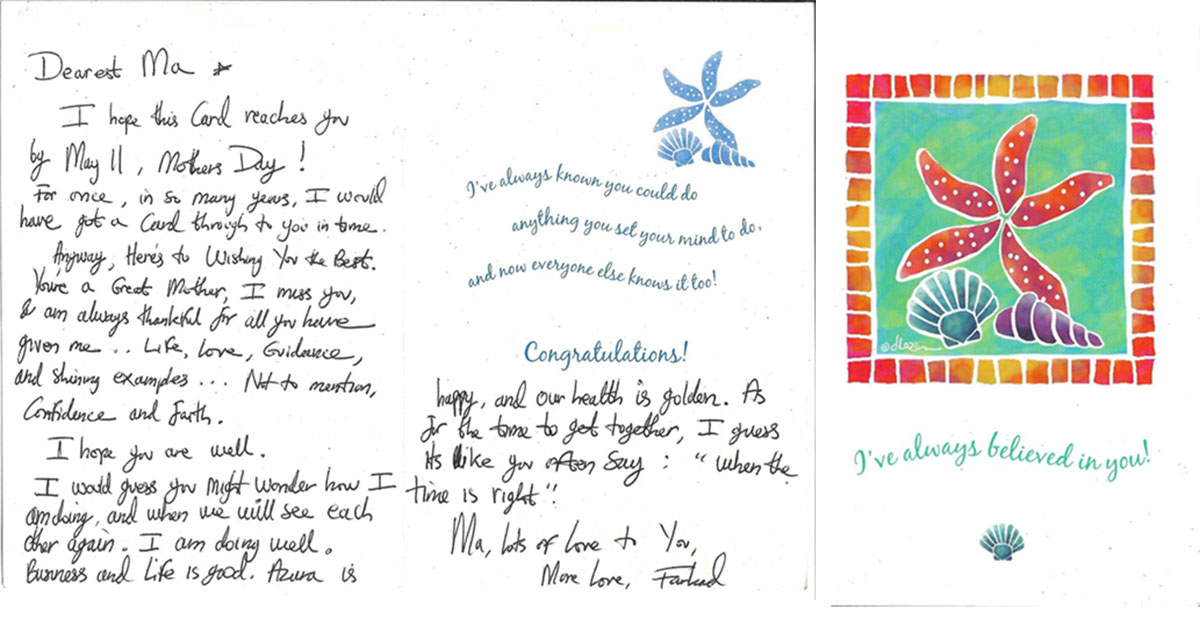 Dearest Ma
I hope this Card reaches you
by May 11, Mothers Day!
For once, in so many years, I would
have got a Card through to you in time.
Anyway, Here's to Wishing You the Best.
You're a Great Mother, I miss you,
& am always thankful for all you have
given me .. Life, Love, Guidance,
and shining examples ... Not to mention,
Confidence and Faith.
I hope you are well.
I would guess you might wonder how I
am doing, and when we will see each
other again. I am doing well.
Business and Life is good. Azura is
I've always known you could do
anything you set your mind to do,
and now everyone else knows it too!
Congratulations!
happy, and our health is golden. As
for the time to get together, I guess
its like you often say : "when the
time is right"!
Ma, lots of love to You,
More Love, Farhad
I've always believed in you!